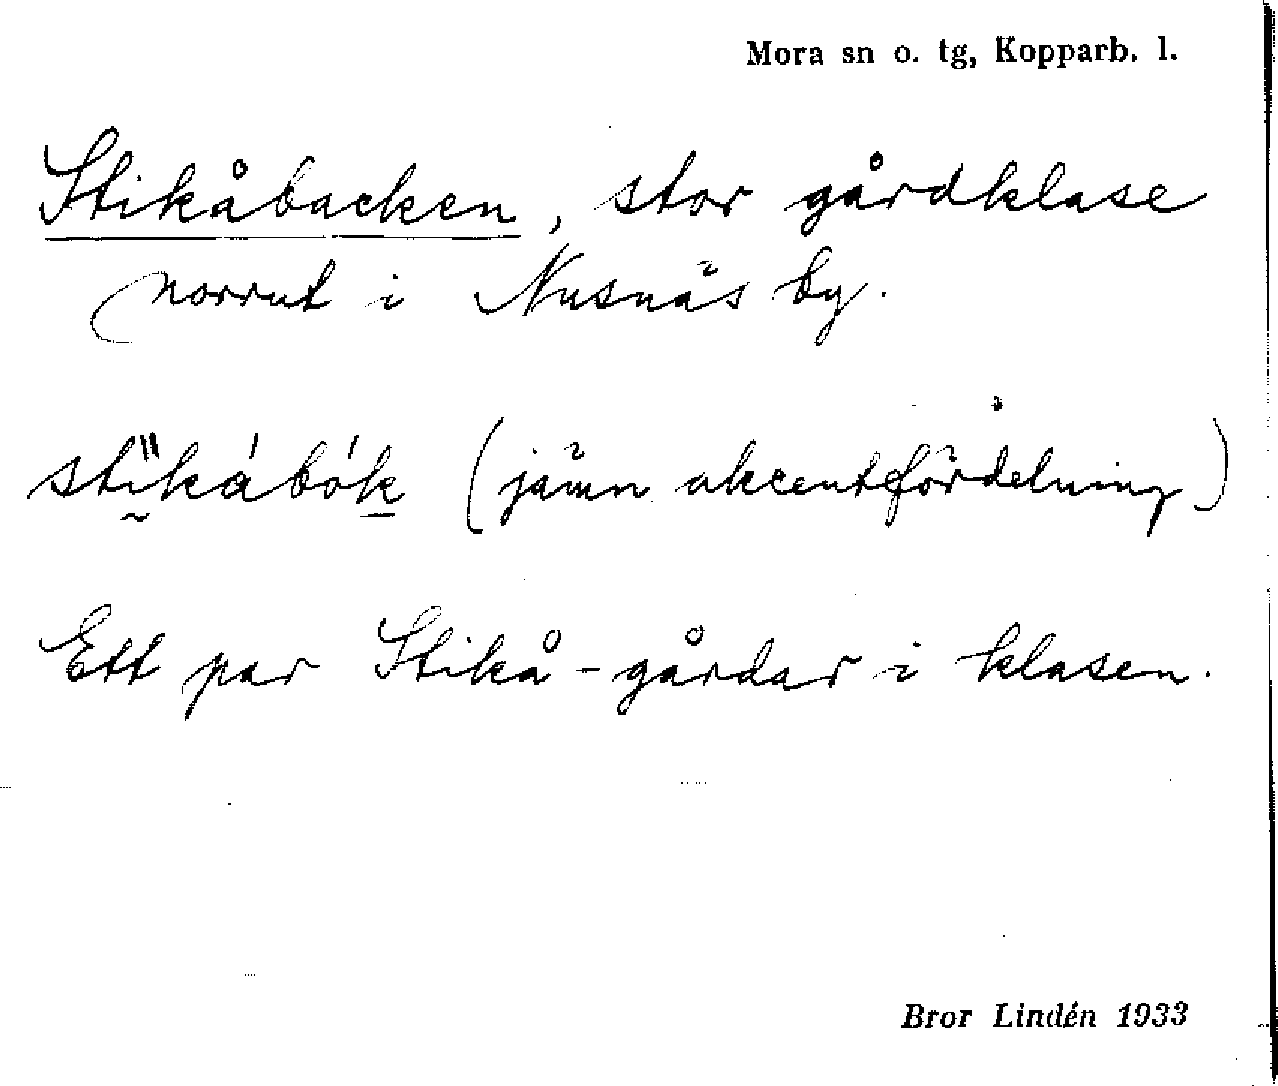 Mora sn o. tg, Kopparb. l.
Stikåbacken, stor gårdklase
norrut i Nusnäs by.
stḭ̋ká́bók̲ (jämn akcentfördelning)
Ett par Stikå-gårdar i klasen.
Bror Lindén 1933